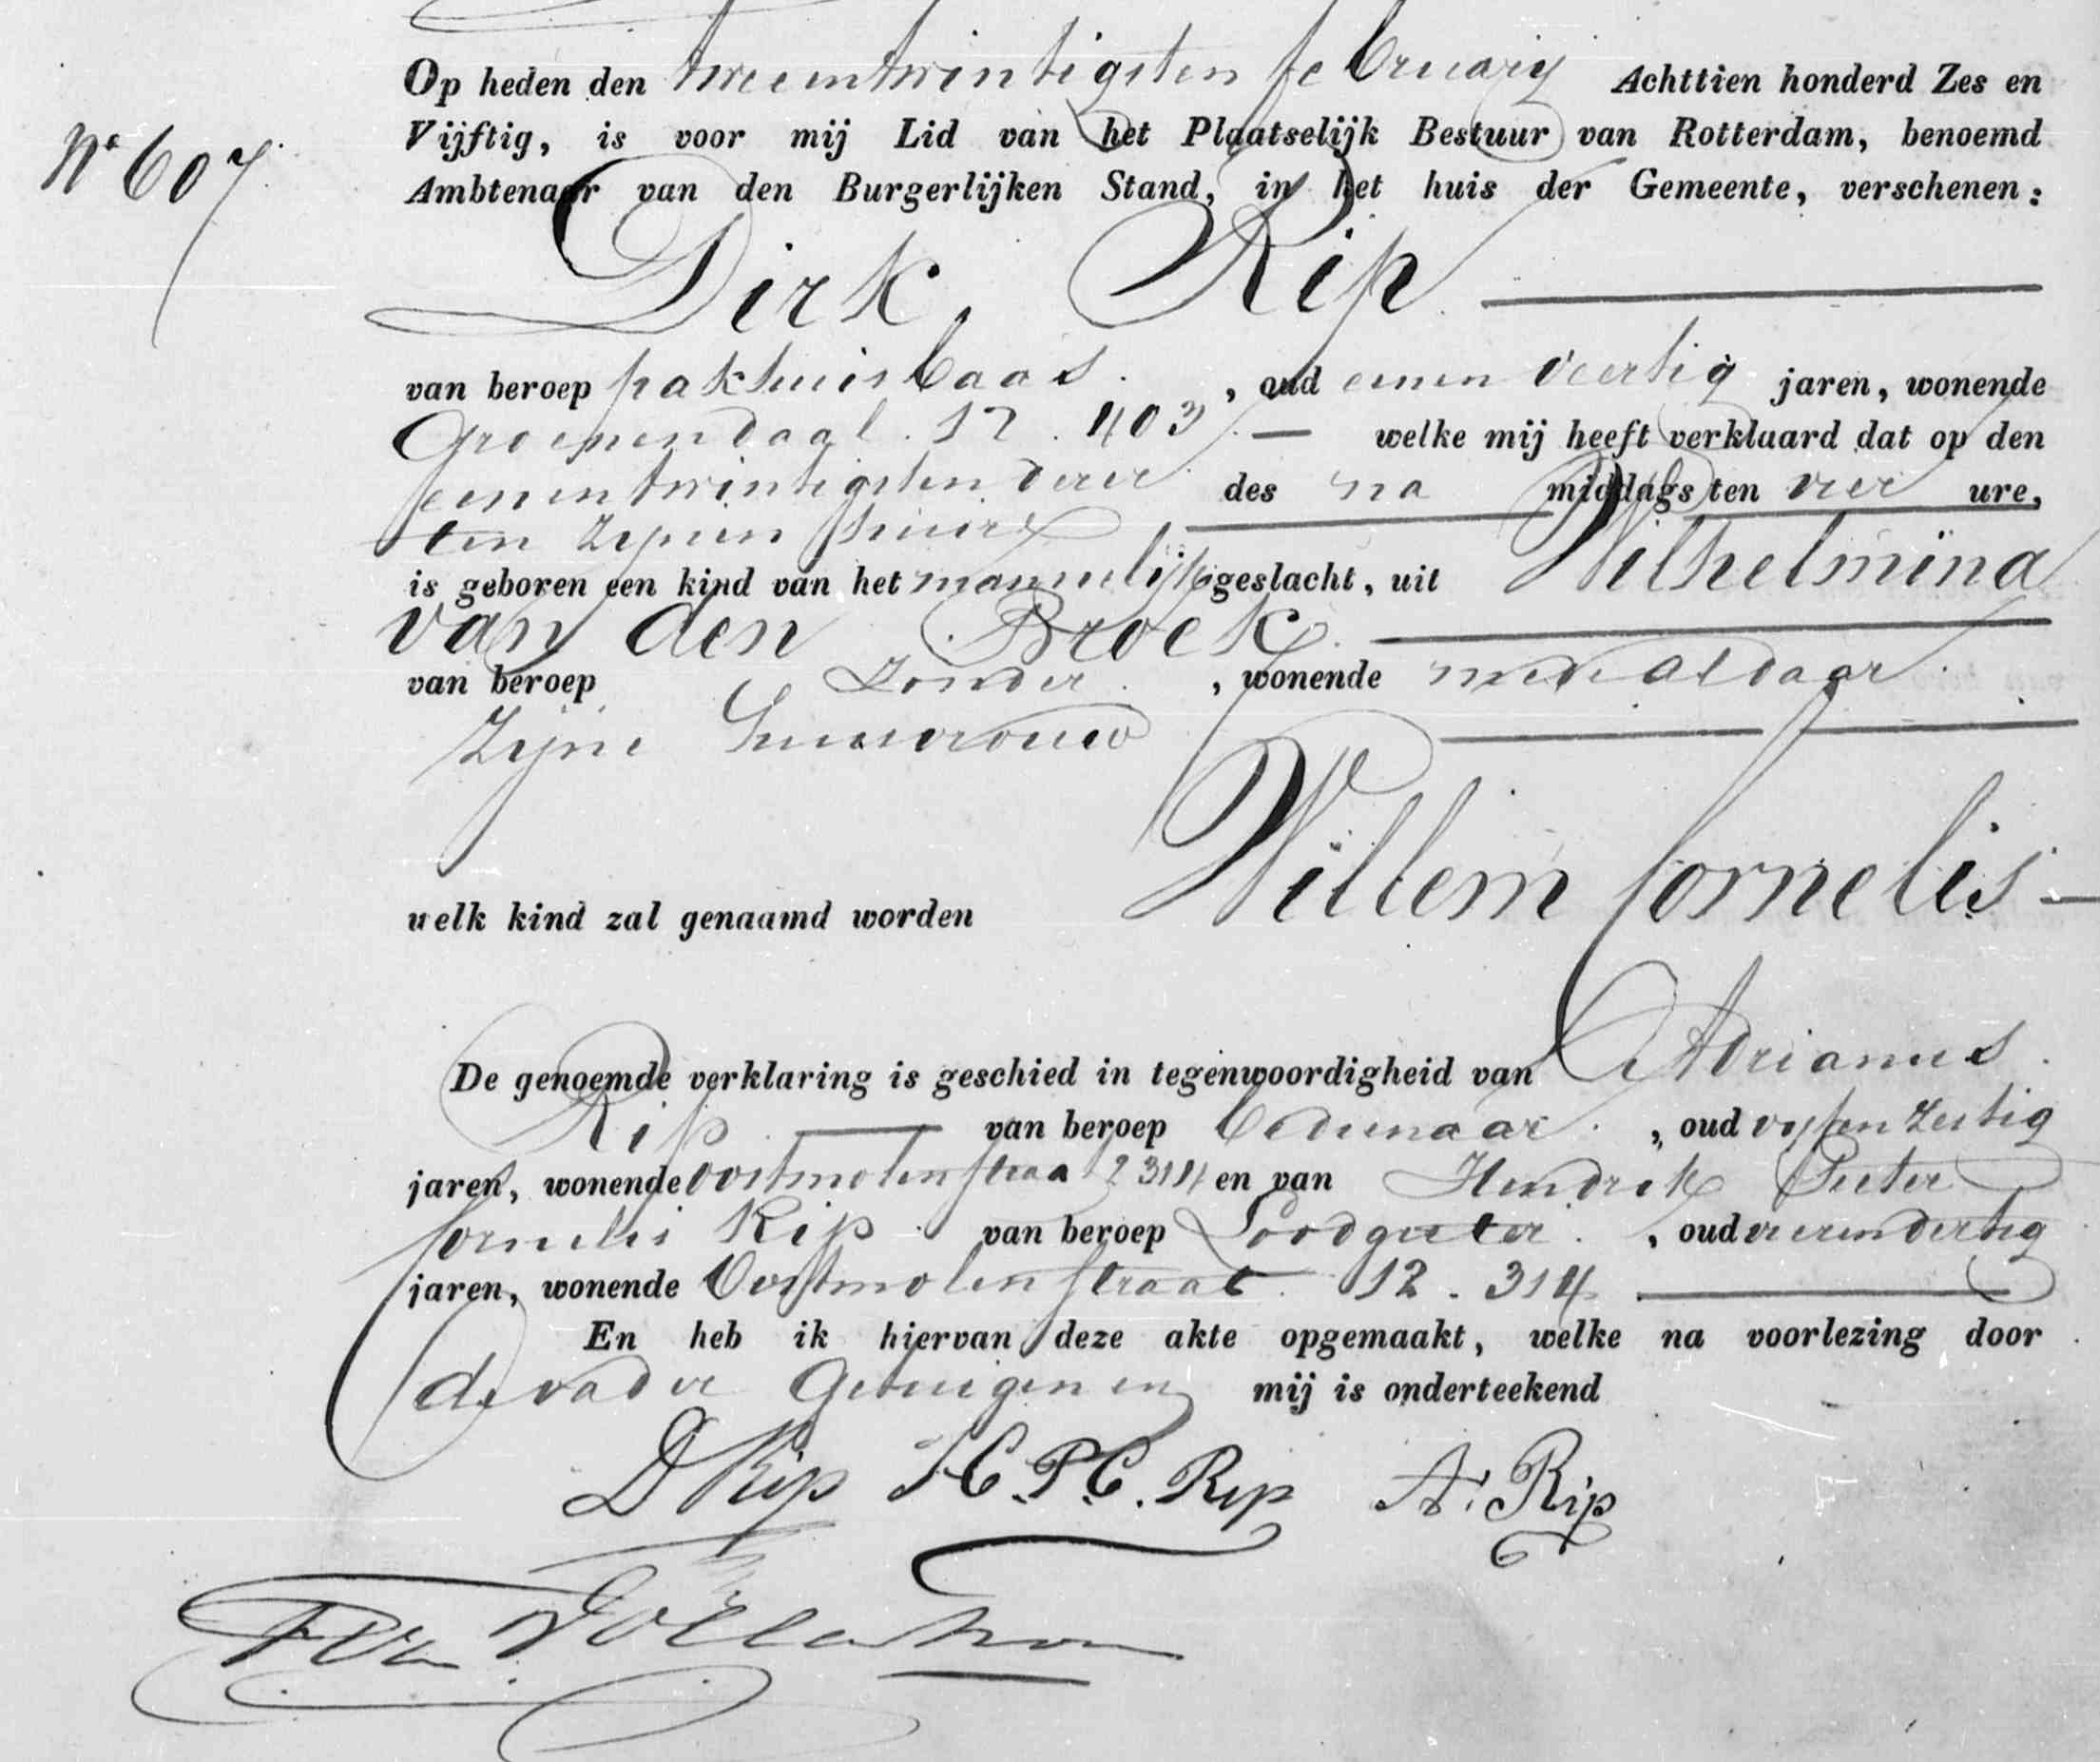 Op heden den tweeentwintigsten february Achttien honderd Zes en
Vijftig, is voor mij Lid van het Plaatselijk Bestuur van Rotterdam, benoemd
No 607.
Ambtenaar van den Burgerlijken Stand, in het huis der Gemeente, verschenen:
Dirk Rip
van beroep pakhuisbaas , oud eenen veertig jaren, wonende
Groenendaal. 12. 403. welke mij heeft verklaard dat op den
eenentwintigsten dezer des na middags ten vier ure,
ten zynen huize
is geboren een kind van het mannelijk geslacht, uit Wilhelmina
van den Broek
van beroep Zonder , wonende mede aldaar
Zyne huisvrouw
welk kind zal genaamd worden Willem Cornelis
De genoemde verklaring is geschied in tegenwoordigheid van Adrianus
Rip van beroep bedienaar , oud vyfenzestig
jaren, wonende Oostmolenstraat 12 314 en van Hendrik Pieter
Cornelis Rip van beroep Loodgieter , oud vierendertig
jaren, wonende Oostmolenstraat. 12. 314
En heb ik hiervan deze akte opgemaakt, welke na voorlezing door
de vader Getuigen en mij is onderteekend
D Rip H. P. C. Rip A. Rip